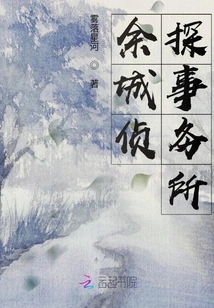 余城侦
探事务所
雾落星河 ◎ 著
云起书院